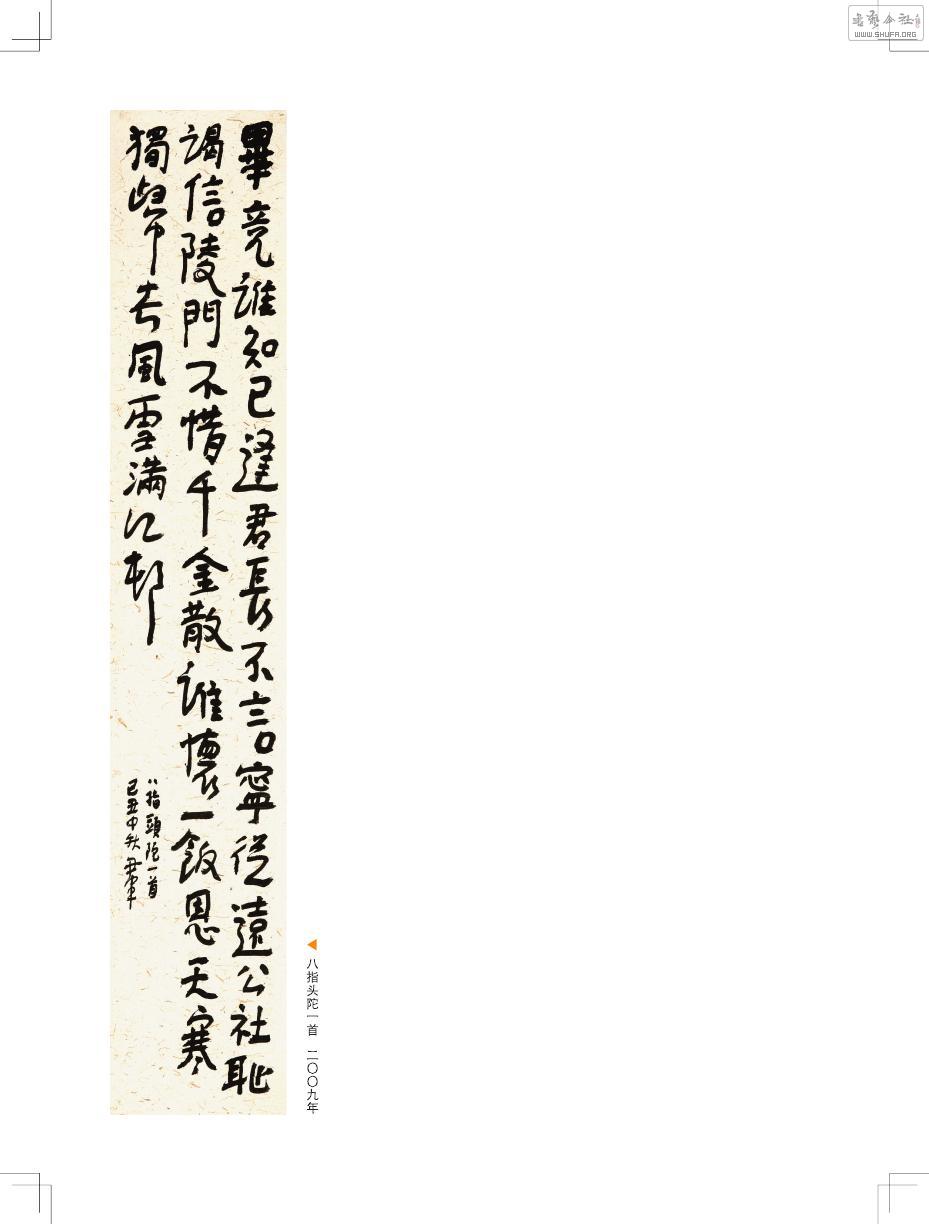 畢竟誰知己逢君長不言寧從遠公社恥
謁信陵門不惜千金散誰懷一飯恩天寒
獨歸去風雪滿江邨
八指頭陀一首
己丑中秋
八指头陀一首 二〇〇九年
WWW.SHUFA.ORG